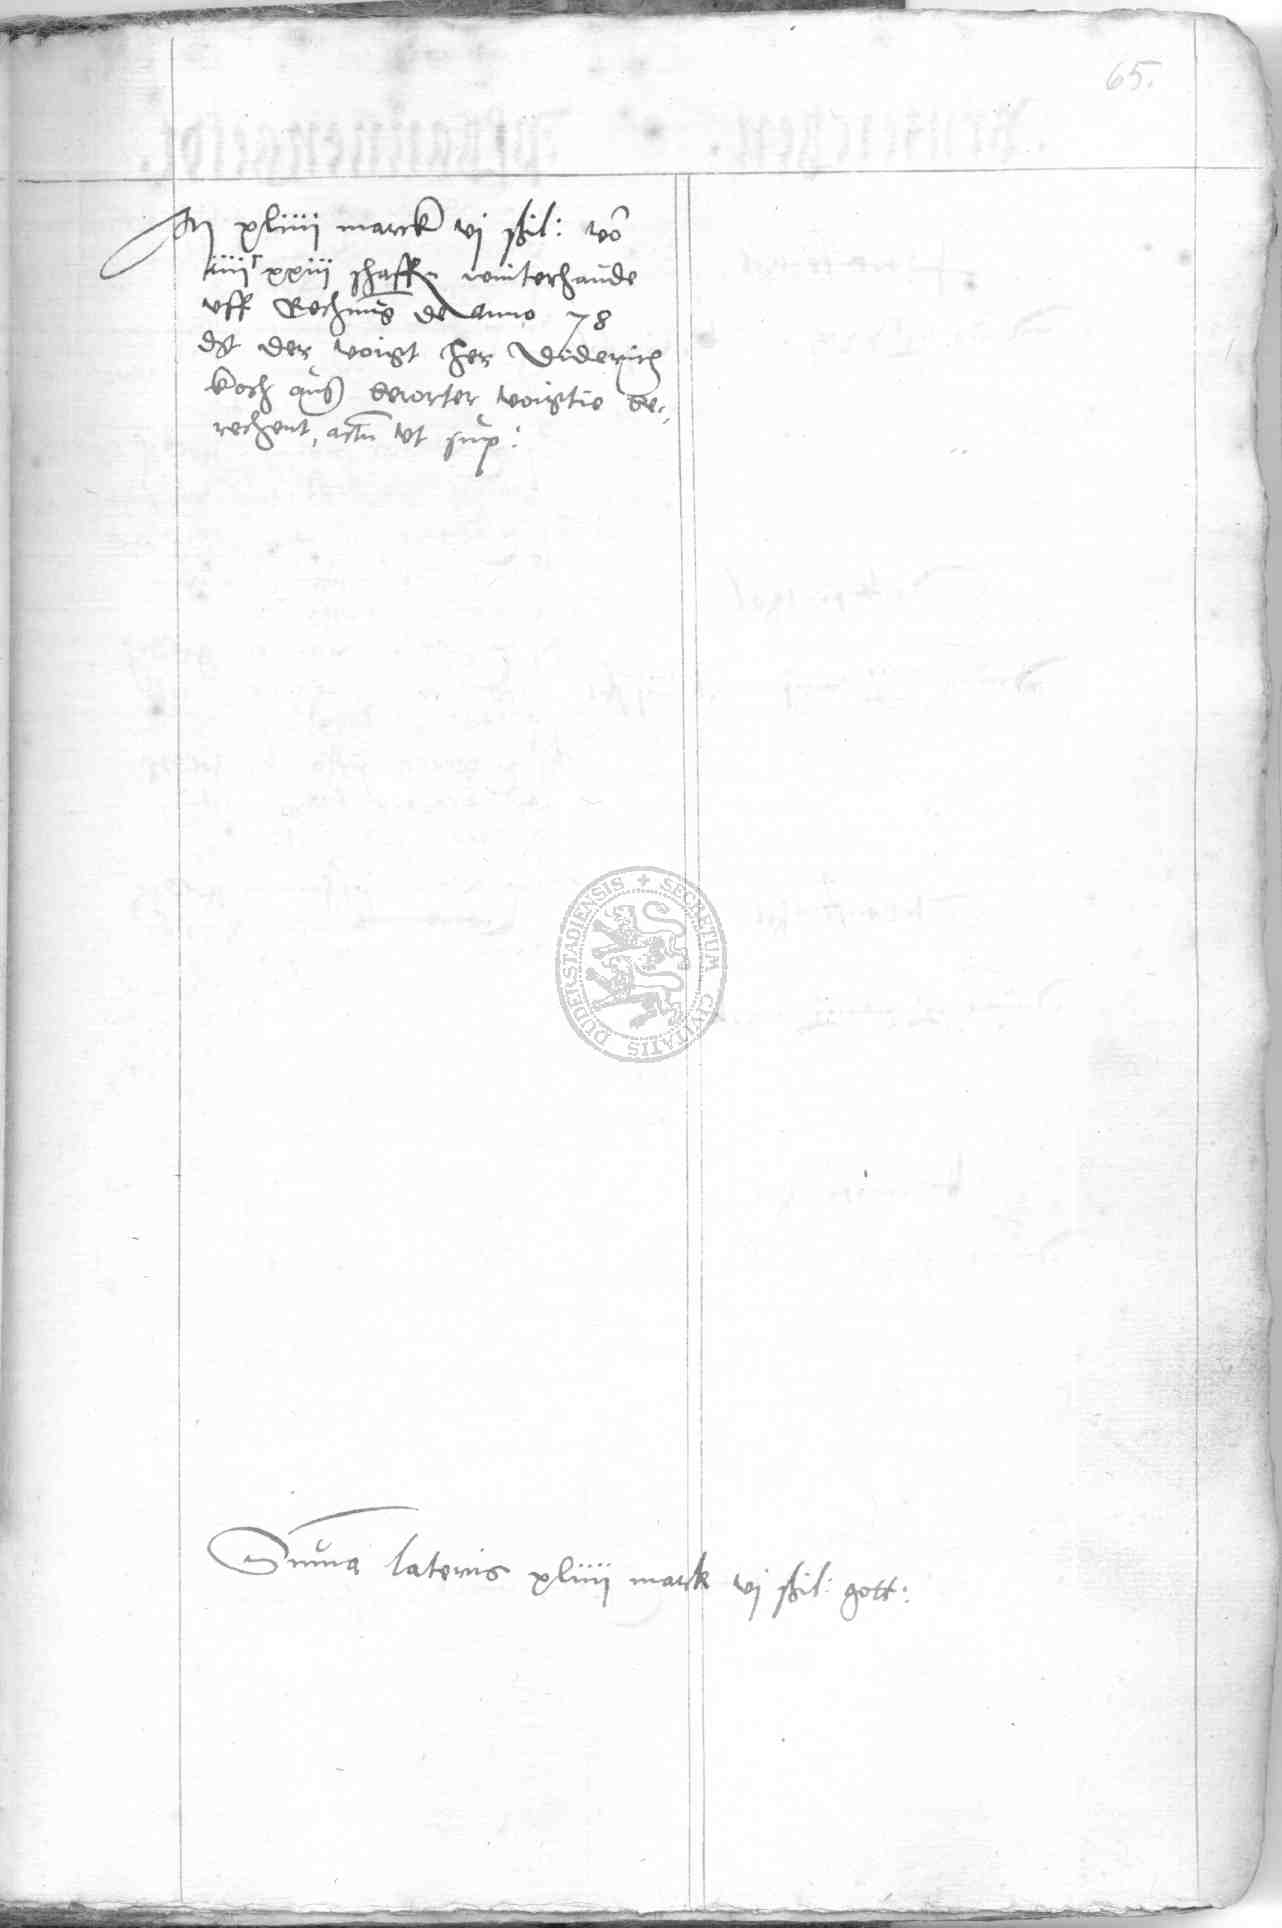 65.
It xliiii marck vj ßil: vō
iiiiͨ xxiii schaffn winterhaude
vff Rechnūg de Anno 78
dʒt der voigt her Diderich
koch auß berorter voigtie be-
rechent, actū vt sup:
DUDERSTADIENSIS + SECRETUM CIVITATIS
Suma lateris xliiii mark vj ßil: gott: